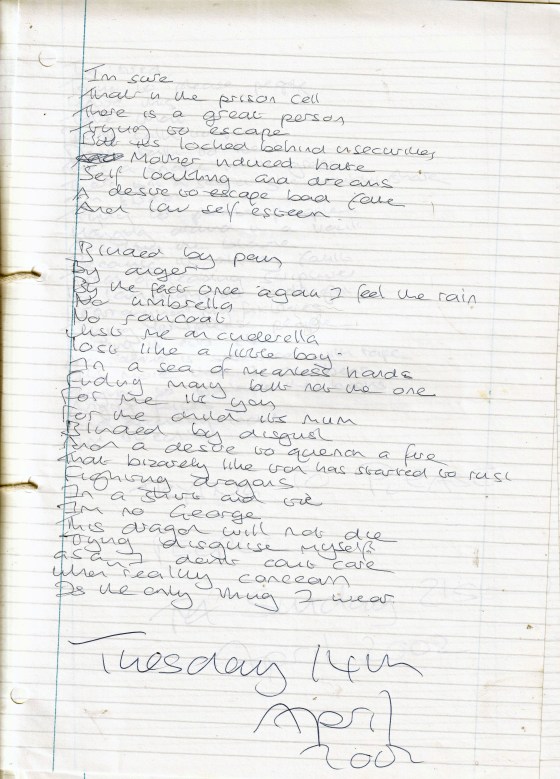 Im sure
That in the prison cell
There is a great person
Trying to escape
But its locked behind insecurities
Mother induced hate
Self loathing and dreams
A desire to escape bad fate
And low self esteem
Blinded by pain
By anger
By the fact once again I feel the rain
No umbrella
No raincoat
Just me an cinderella
Lost like a little boy
In a sea of hands
Finding many but not the one
For me its you
For the child its mum
Blinded by disgust
And a desire to quench a fire
That bizarely like iron has started to rust
Fighting dragons
In a shirt and tie
Im no George
This dragon will not die
Trying disguise myself
as an I don't care
when reality concern
Is the only thing I wear
Tuesday 14th
April
2002